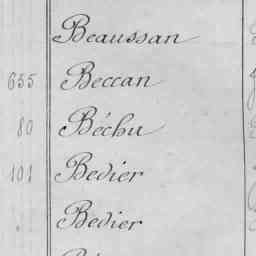 Beaussan
655 Beccan
80 Béchu
101 Bedier
Bedier